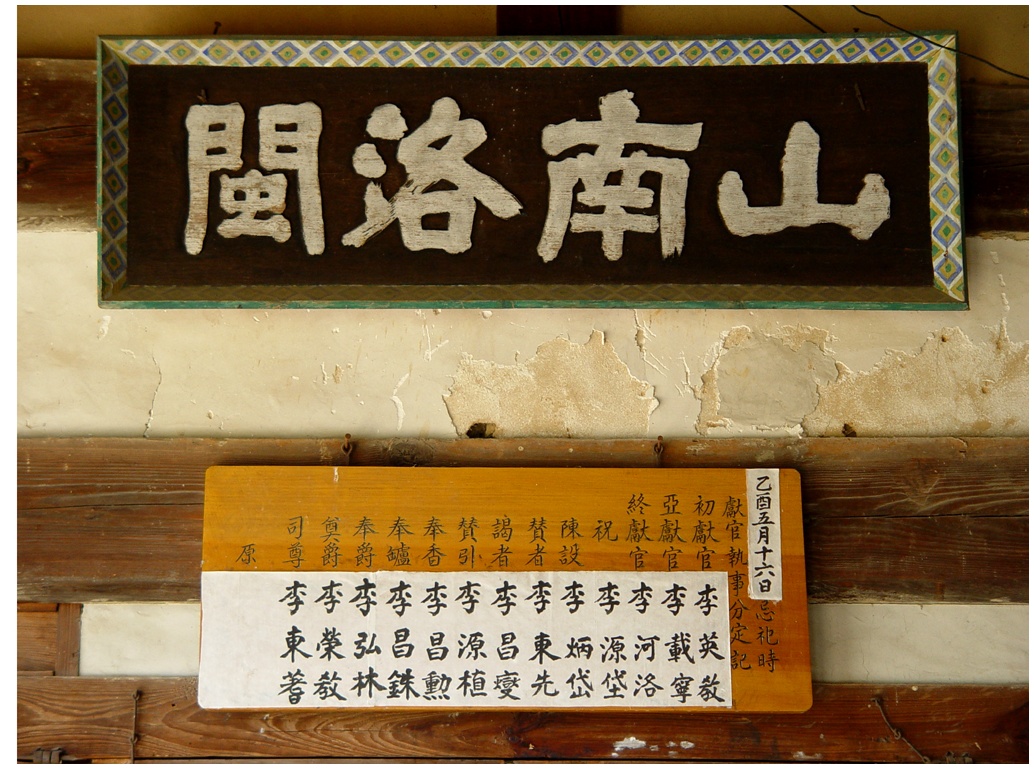 山南洛閩
乙酉五月十六日忌祀時
獻官執事分定記
初獻官 李英教
亞獻官 李載寧
終獻官 李河洛
祝 李源垈
陳設 李炳岱
賛者 李東先
謁者 李昌燮
賛引 李源植
奉香 李昌勳
奉鑪 李昌銖
奉爵 李弘林
奠爵 李榮教
司尊 李東蓍
原